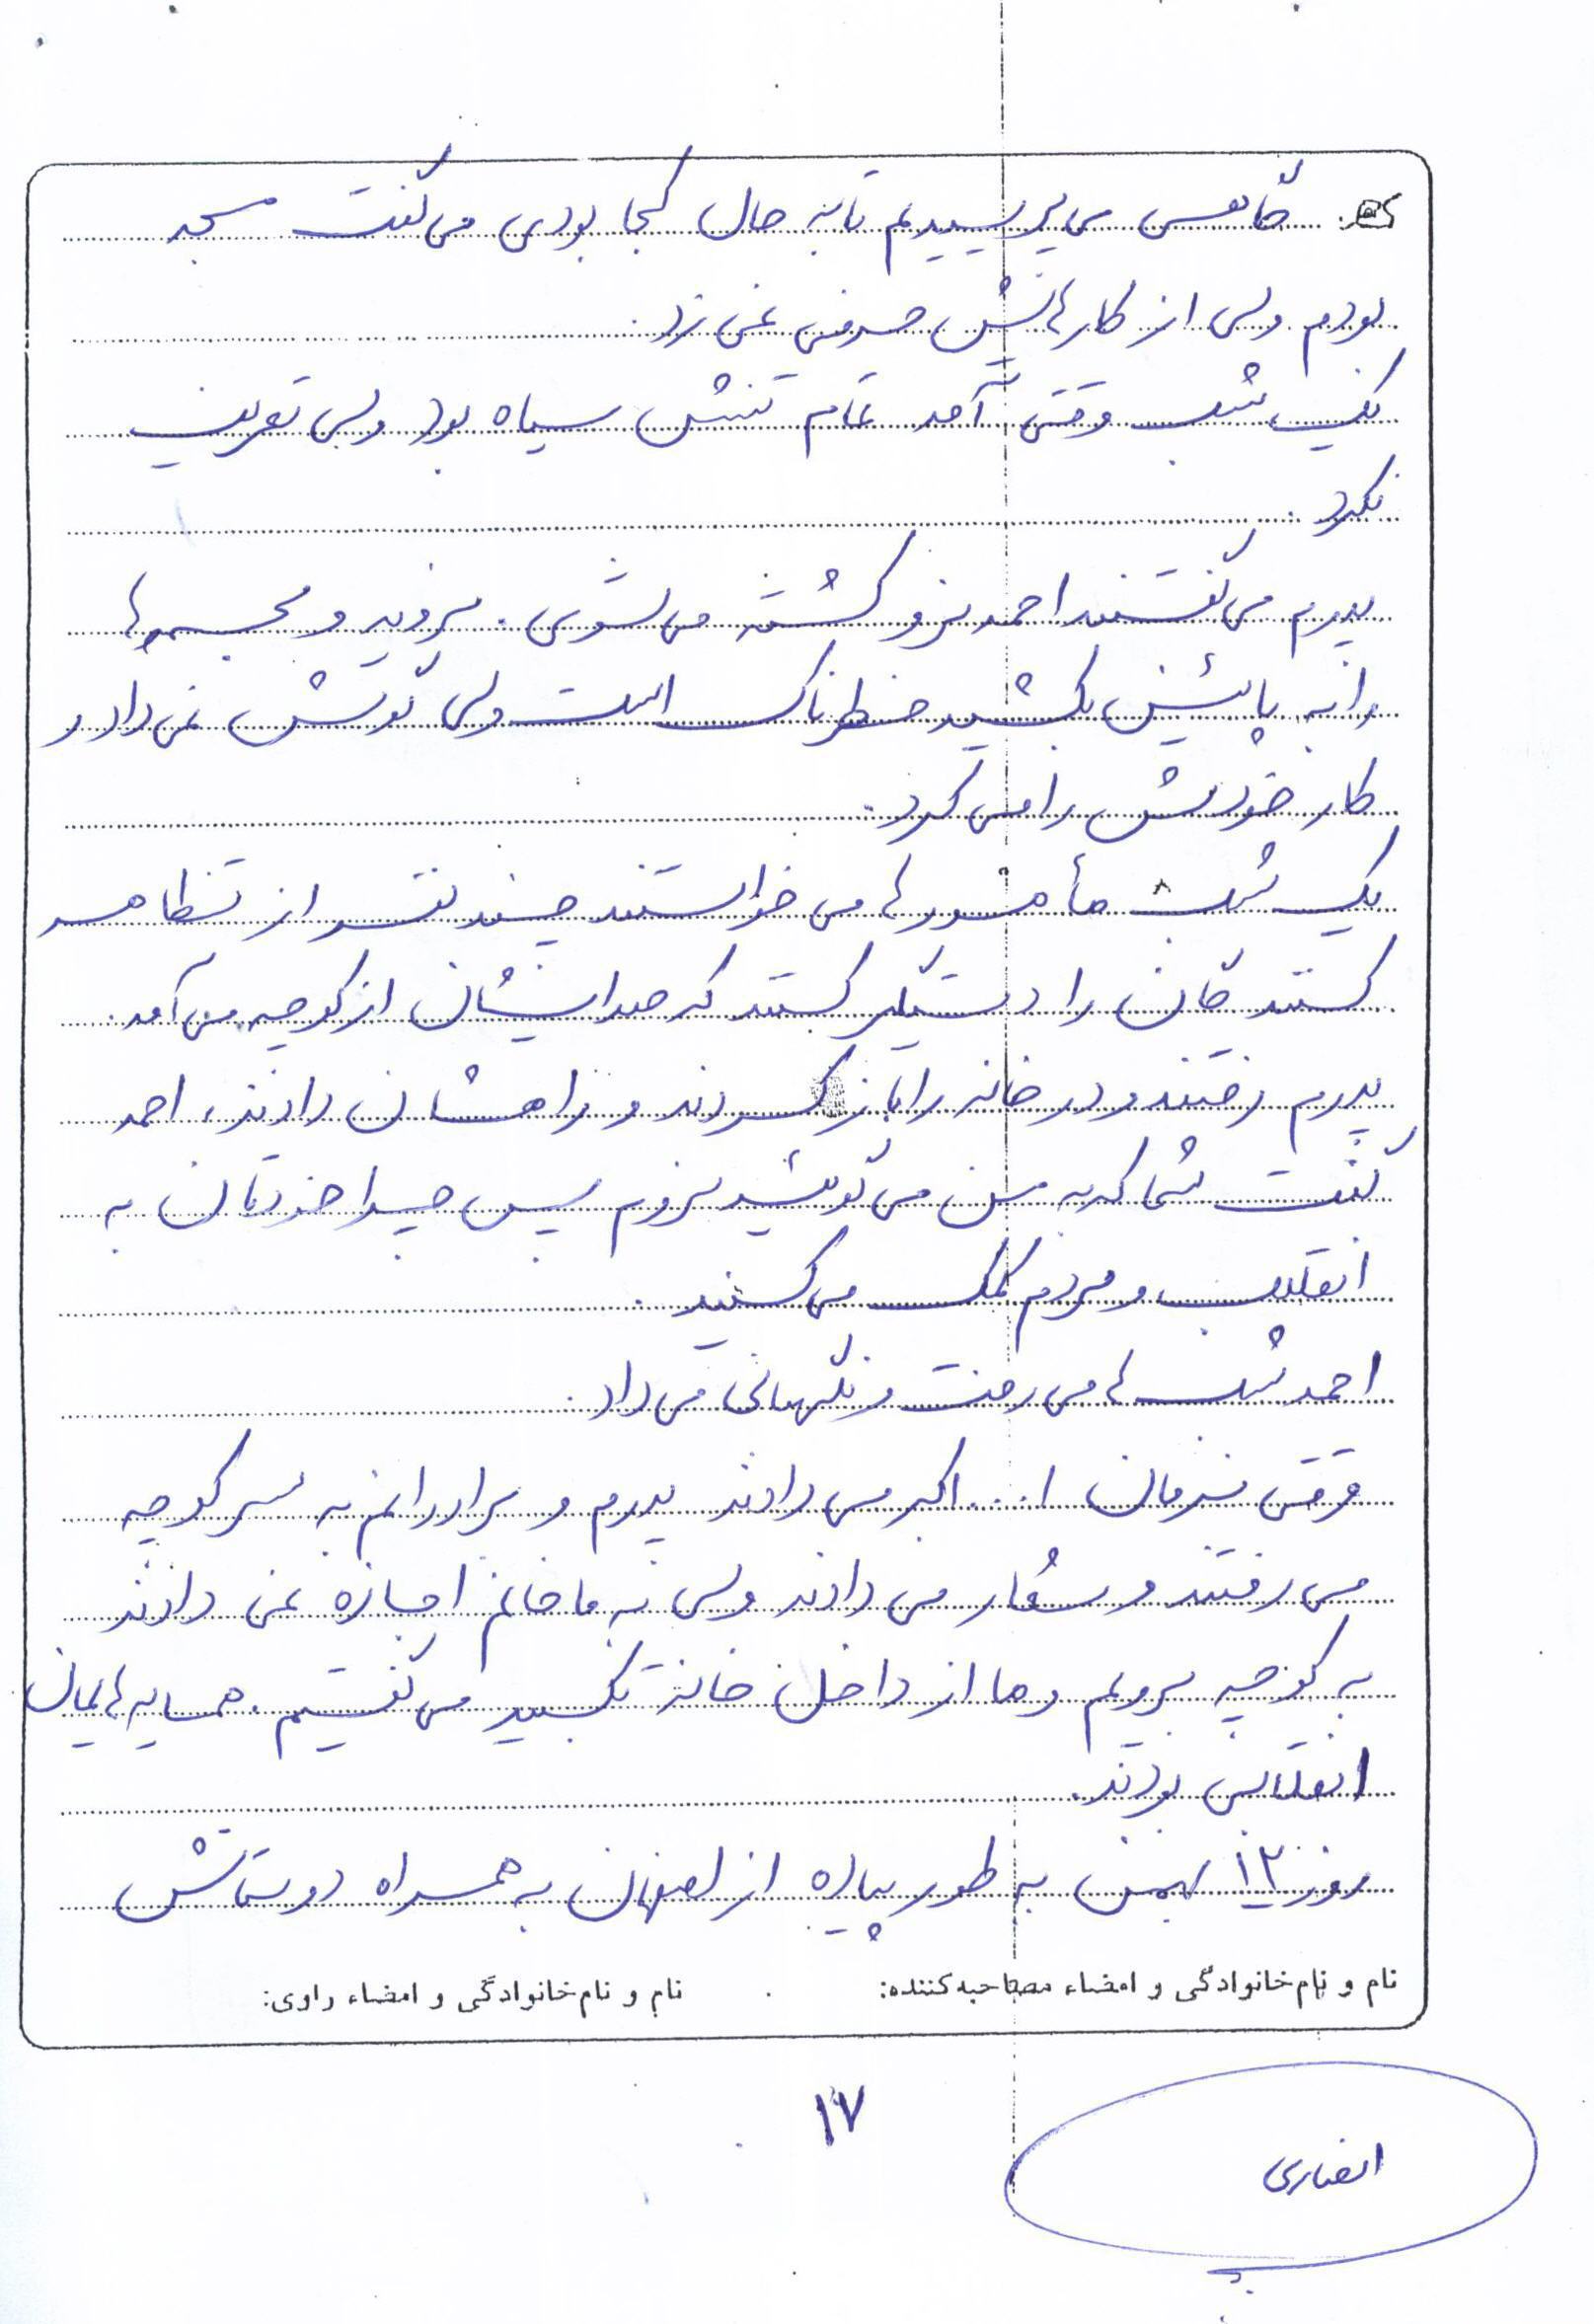 گاهی می پرسیدیم تا به حال کجا بودی می گفت مسجد
بودم ولی از کارهایش حرفی نمی زد.
یک شب وقتی آمد تمام تنش سیاه بود ولی تعریف
نکرد.
پدرم می گفتند احمد نرو کشته می شوی. نروید و مجسمه ها
را به پائین بکشید خطرناک است ولی گوش نمی داد و
کار خودش را می کرد.
یک شب مأمورها می خواستند چند نفر از تظاهر
کنندگان را دستگیر کنند که صدایشان از کوچه می آمد.
پدرم رفتند و در خانه را باز کردند و راهشان دادند، احمد
گفت شما که به من می گوئید نروم پس چرا خودتان به
انقلاب و مردم کمک می کنید.
احمد شب ها می رفت و نگهبانی می داد.
وقتی فرمان ا... اکبر می دادند پدرم و برادرانم به سر کوچه
می رفتند و شعار می دادند ولی به ما خانم اجازه نمی دادند
به کوچه برویم و ما از داخل خانه تکبیر می گفتیم. همسایه هایمان
انقلابی بودند.
روز ۱۲ بهمن به طور پیاده از اصفهان به همراه دوستانش
نام و نام خانوادگی و امضاء مصاحبه کننده: نام و نام خانوادگی و امضاء راوی:
۱۷
انصاری